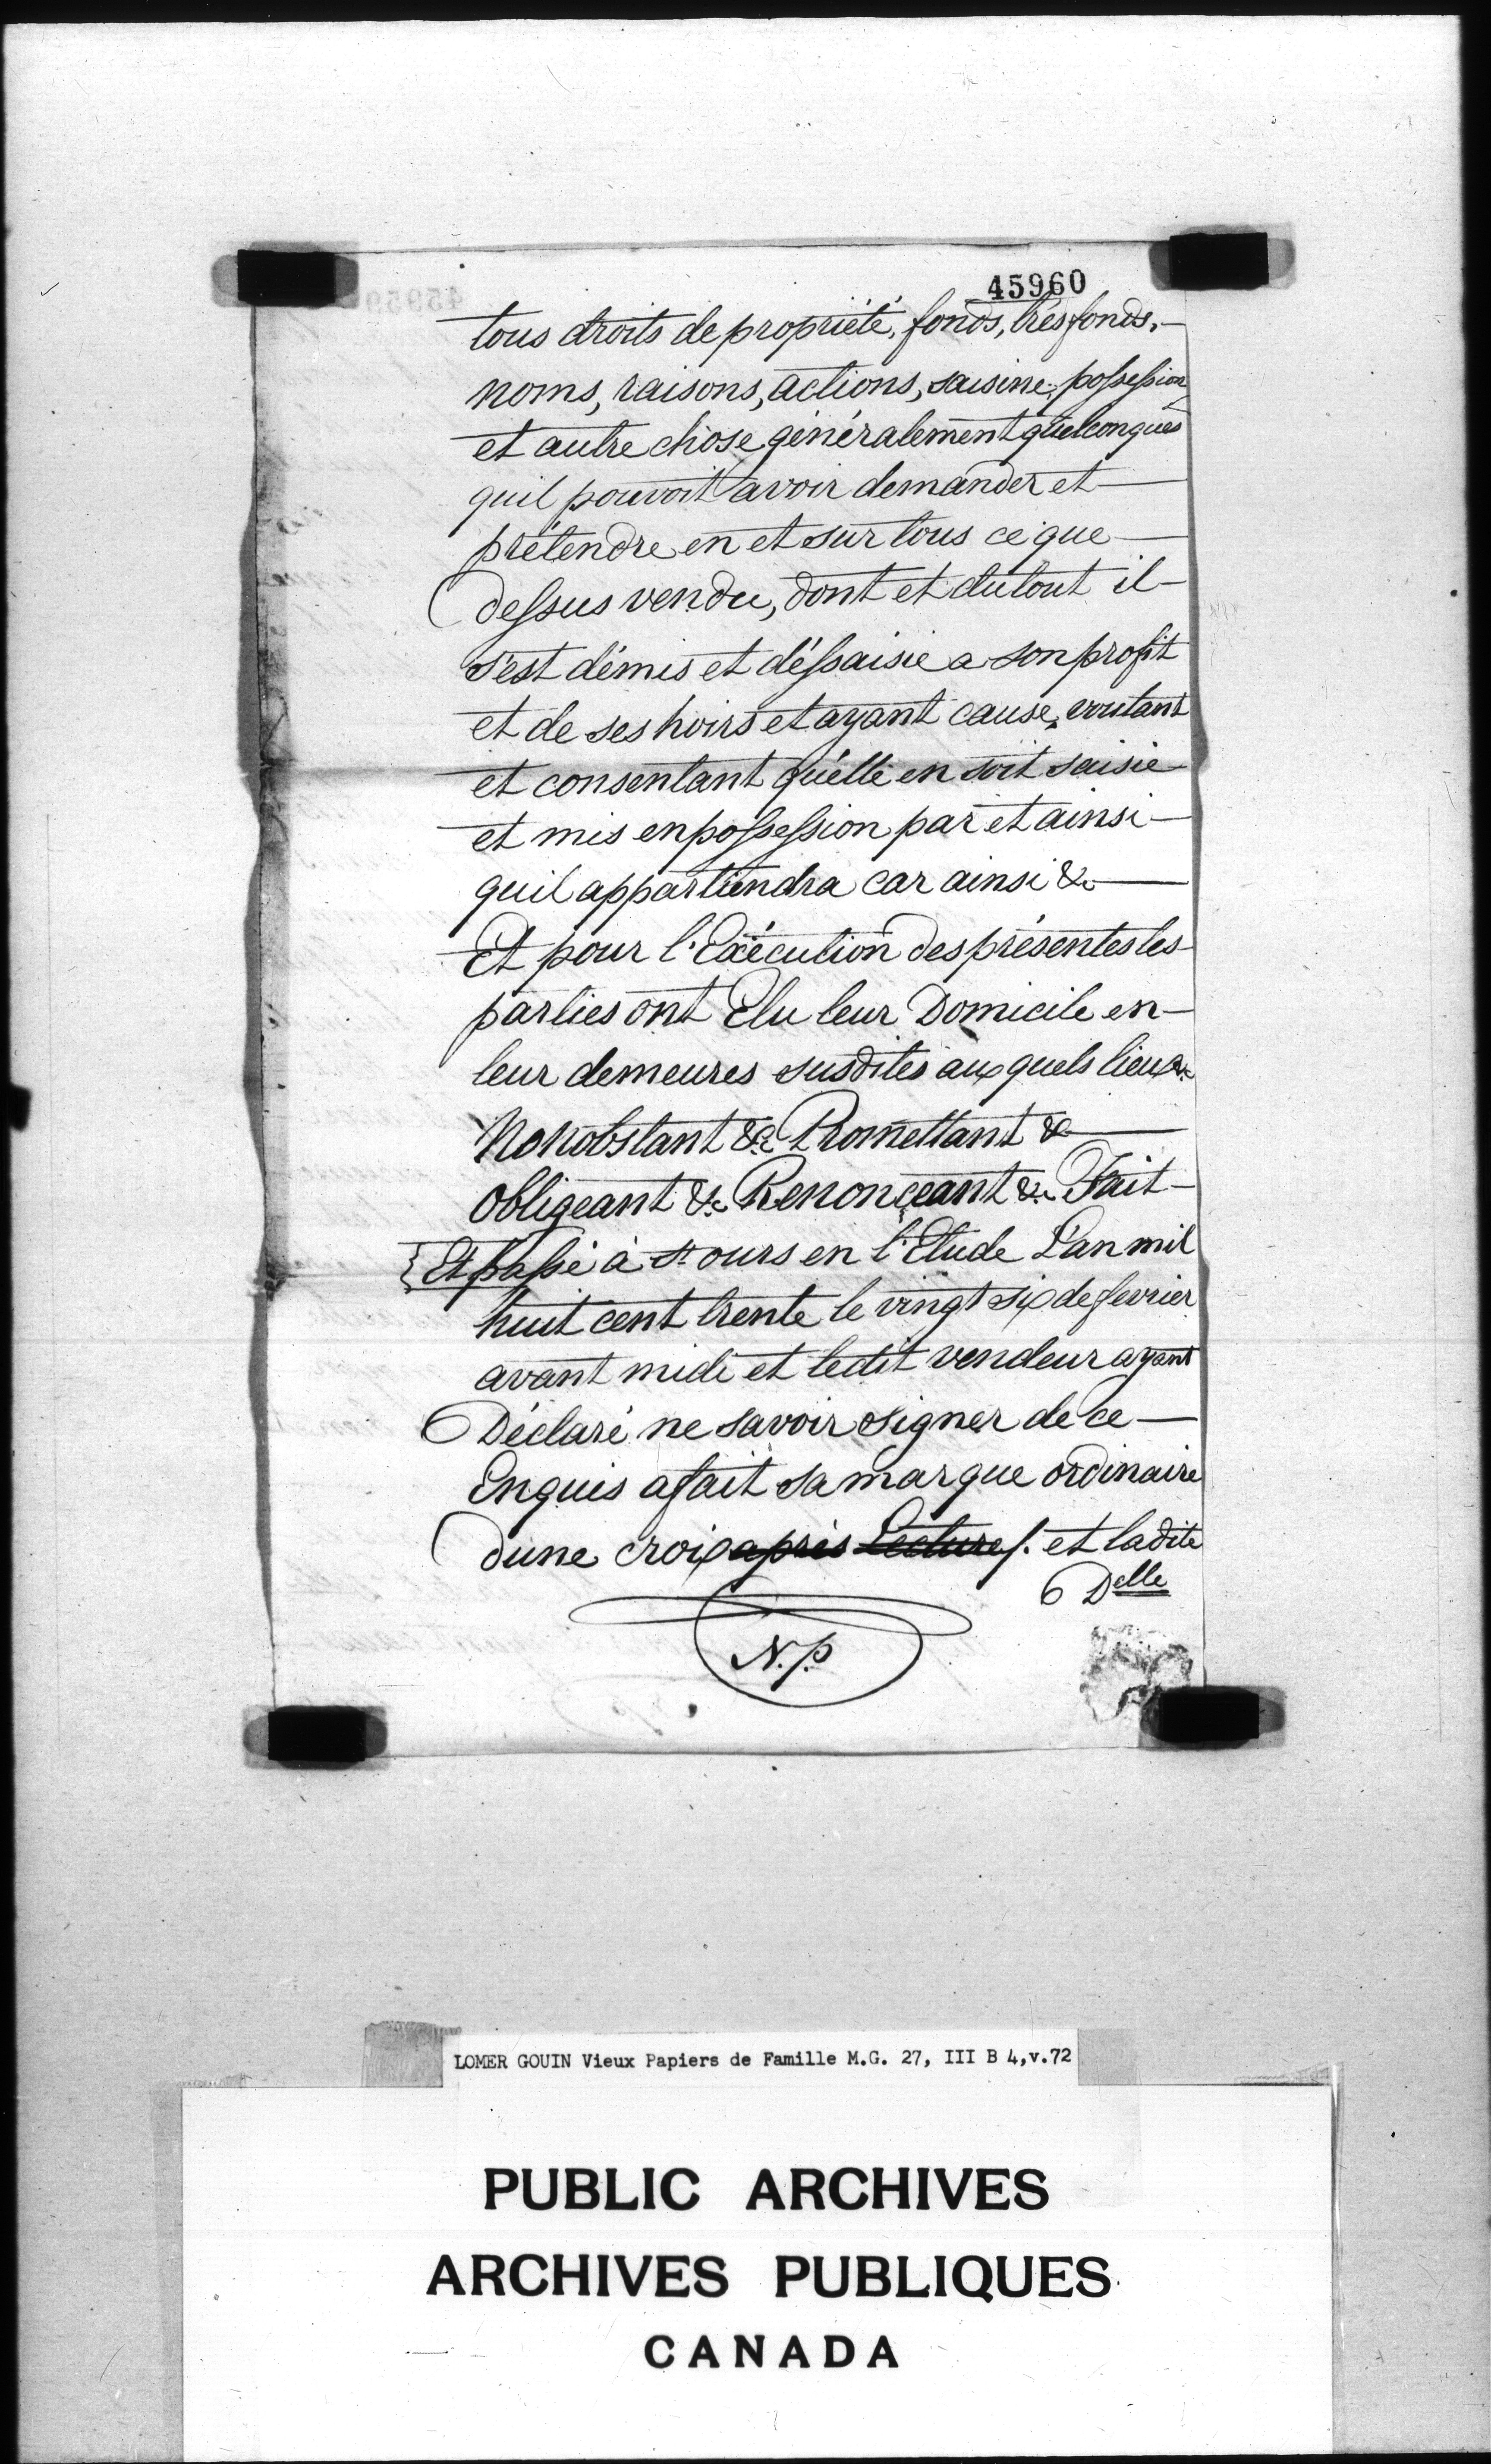 45960
tous droits de propriété, fonds, trés fonds,
noms, raisons, actions, saisine, possession
et autre chose généralement quelconques
quil pouvoit avoir demander et
prétendre en et sur tous ce que
dessus vendu, dont et du tout il
s'est démis et déssaisie a son profit
et de ses hoirs et ayant cause, voulant
et consentant qu'elle en soit saisie
et mis en possession par et ainsi
quil appartiendra car ainsi &c
Et pour l'Exécution des présentes les
parties ont Elu leur Domicile en
leur demeures susdites aux quels lieux &c
Nonobstant &c Promettant &
Obligeant &c Renonçeant &c Fait
Et passé à St ours en l'Etude L'an mil
huit cent trente le vingt six de fevrier
avant midi et ledit vendeur ayant
Déclaré ne savoir signer de ce
Enquis a fait sa marque ordinaire
dune croix après Lecture /. et ladite
Delle
N.p.
LOMER GOUIN Vieux Papiers de Famille M.G. 27, III B 4,v.72
PUBLIC ARCHIVES
ARCHIVES PUBLIQUES
CANADA